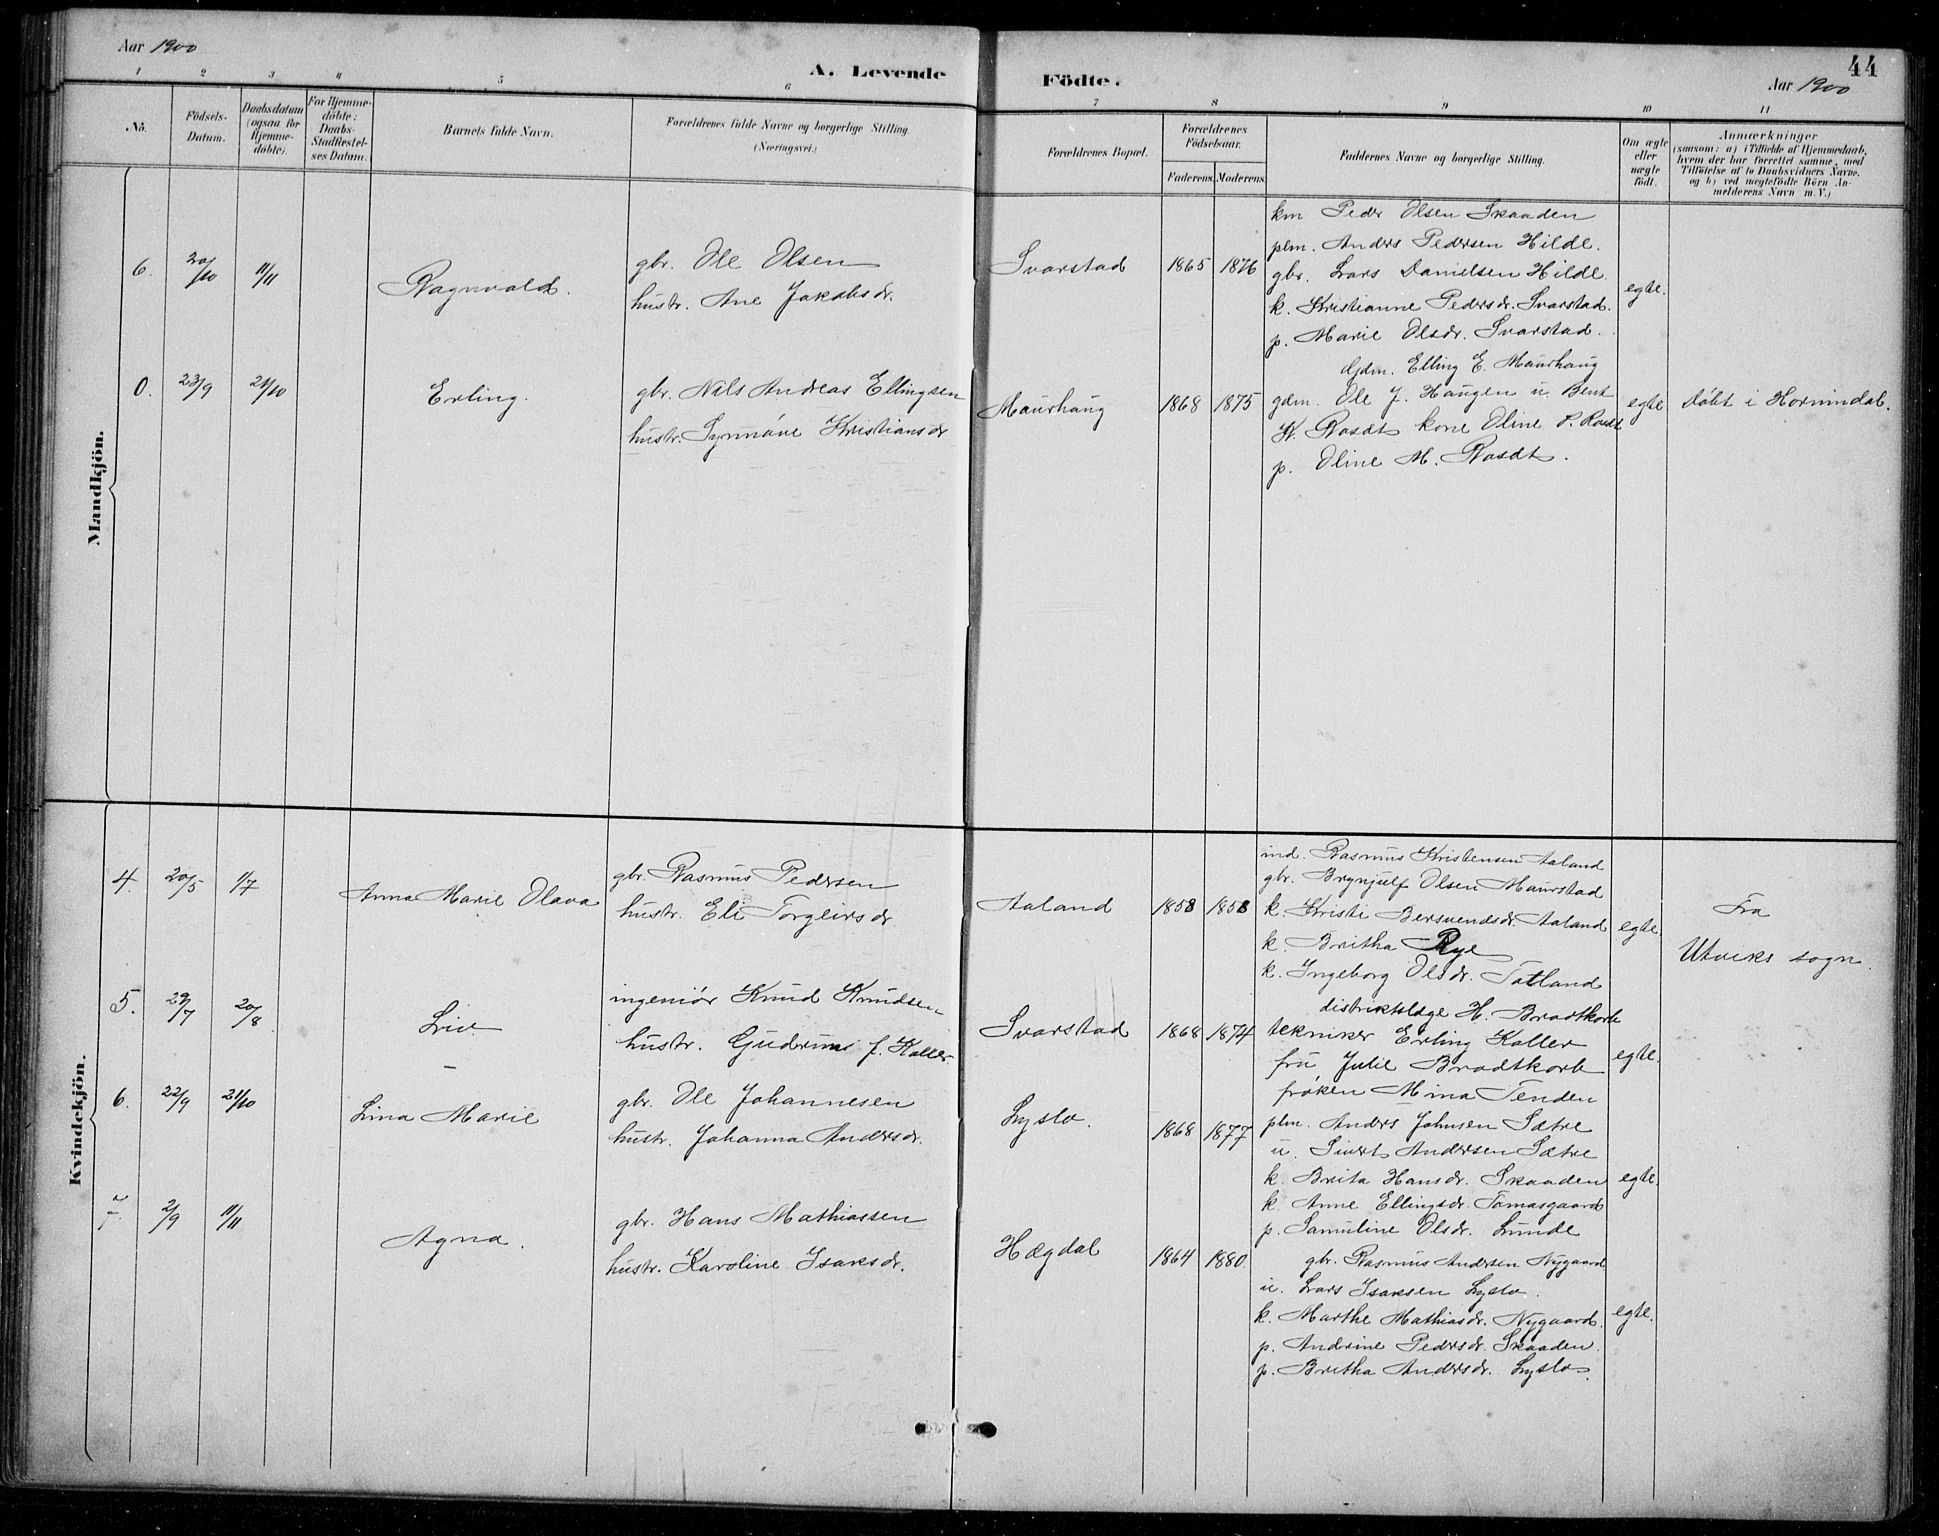 Aar 1900
A. Levende Födte.
44
Aar 1900
1 2 3 4 5 6 7 8 9 10 11
No.
Födsels-Datum.
Daabsdatum (ogsaa for Hjemme-döbte).
For Hjemme-döbte: Daabs-Stadfæstel-ses Datum.
Barnets fulde Navn.
Forældrenes fulde Navne og borgerlige Stilling.
(Næringsvei.)
Forældrenes Bopæl.
Forældrenes Födselsaar.
Faderens. Moderens.
Faddernes Navne og borgerlige Stilling.
Om ægte eller uægte födt.
Anmærkninger
(saasom: a) i Tilfælde af Hjemmedaab,
hvem der har forrettet samme, med
Tilföielse af to Daabsvidners Navne,
og b) ved uægtefödte Börn An-
melderens Navn m.V.)
Mandkjön.
6. 20/10 11/11 Ragnvald.
gbr. Ole Olsen
hustr. Ane Jakobsdr.
Svarstad 1865 1876
km Peder Olsen Skaaden
plm. Anders Pedersen Hilde.
gbr. Lars Danielsen Hilde.
k. Kristianne Pedersdr. Svarstad.
p. Marie Olsdr. Svarstad.
egte.
0. 23/9 21/10 Erling.
gbr. Nils Andreas Ellingsen
hustr. Synnöve Kristiansdr
Maurhaug 1868 1875
Gdm. Elling E. Maurhaug
gdm. Ole J. Haugen u. Bent
K. Raadt kone Oline P. Raadt
p. Oline M. Raadt.
egte
Döbt i Hornindal.
Kvindekjön.
4. 20/5 1/7 Anna Marie Olava
gbr. Rasmus Pedersen
hustr. Eli Torgeirsdr.
Aaland 1858 1858
ind. Rasmus Kristensen Aaland
gbr. Brynjulf Olsen Maurstad
k. Kristi Bersvendsdr. Aaland
k. Britha Rye
k. Ingeborg Olsdr. Totland
egte.
Fra
Utviks sogn.
5. 29/7 20/8 Liv
ingeniör Knud Knudsen
hustr. Gudrun f. Koller
Svarstad 1868 1874
distriktslæge H. Brodtkorb
tekniker Erling Koller
fru Julie Brodtkorb
fröken Mina Tenden
egte.
6. 22/9 21/10 Lina Marie
gbr. Ole Johannesen
hustr. Johanna Andersdr.
Lyslo. 1868 1877
plm. Anders Johnsen Sætre
u. Sivert Andersen Sætre
k. Brita Hansdr. Skaaden
k. Anne Ellingsdr. Tomasgaard
p. Samuline Olsdr. Lunde
egte.
7. 2/9 11/11 Agna.
gbr. Hans Mathiassen
hustr. Karoline Isaksdr.
Hægdal 1864 1880
gbr. Rasmus Andersen Nygaard
u. Lars Isaksen Lyslo.
k. Marthe Mathiasdr. Nygaard.
p. Andrine Pedersdr. Skaaden.
p. Britha Andersdr. Lyslo.
egte.